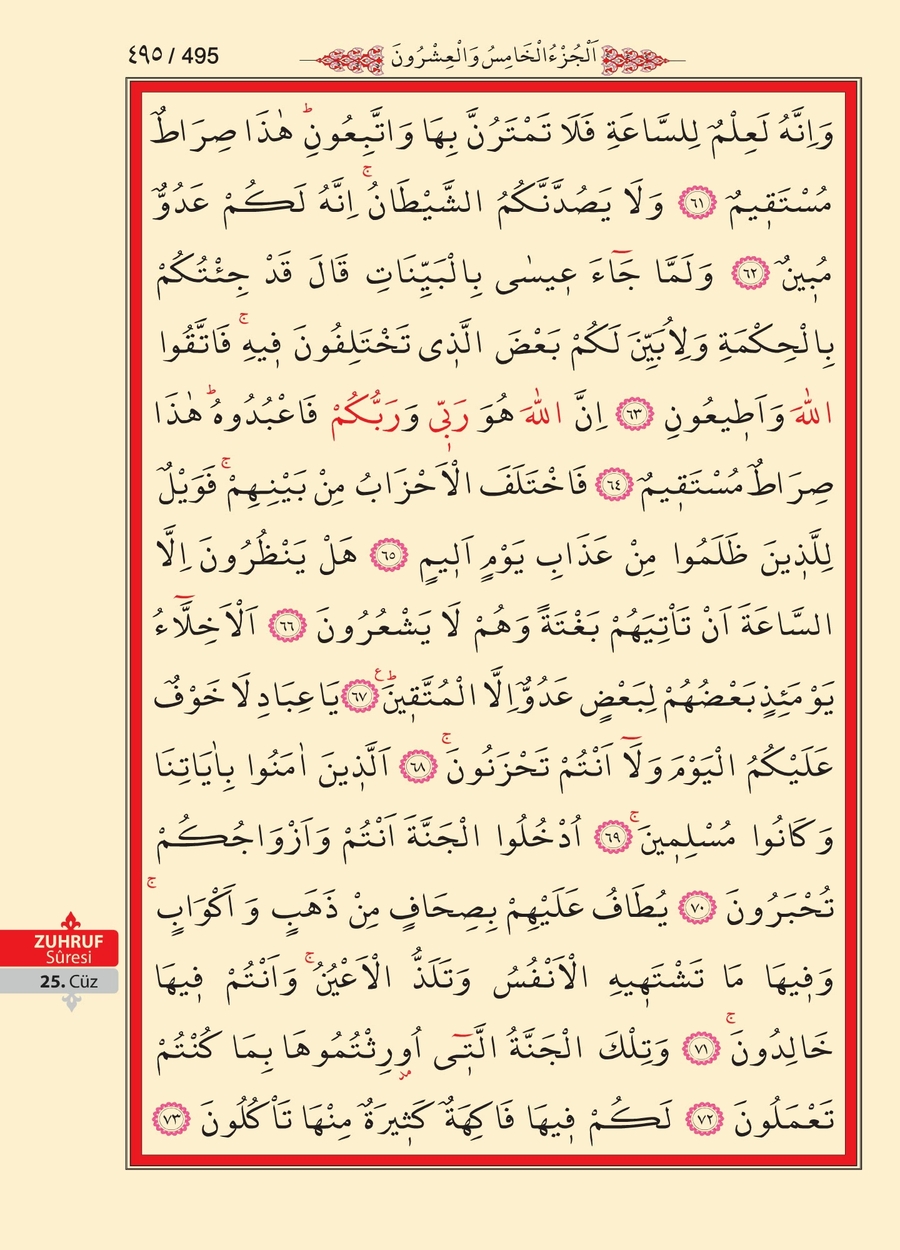 ٤٩٥ / 495
اَلْجُزْءُ الْخَامِسُ وَالْعِشْرُونَ
وَاِنَّهُ لَعِلْمٌ لِلسَّاعَةِ فَلَا تَمْتَرُنَّ بِهَا وَاتَّبِعُونِۜ هٰذَا صِرَاطٌ
مُسْتَق۪يمٌ ﴿٦١﴾ وَلَا يَصُدَّنَّكُمُ الشَّيْطَانُۚ اِنَّهُ لَكُمْ عَدُوٌّ
مُب۪ينٌ ﴿٦٢﴾ وَلَمَّا جَٓاءَ ع۪يسٰى بِالْبَيِّنَاتِ قَالَ قَدْ جِئْتُكُمْ
بِالْحِكْمَةِ وَلِاُبَيِّنَ لَكُمْ بَعْضَ الَّذ۪ى تَخْتَلِفُونَ ف۪يهِۚ فَاتَّقُوا
اللّٰهَ وَاَط۪يعُونِ ﴿٦٣﴾ اِنَّ اللّٰهَ هُوَ رَبّ۪ى وَرَبُّكُمْ فَاعْبُدُوهُۜ هٰذَا
صِرَاطٌ مُسْتَق۪يمٌ ﴿٦٤﴾ فَاخْتَلَفَ الْاَحْزَابُ مِنْ بَيْنِهِمْۚ فَوَيْلٌ
لِلَّذ۪ينَ ظَلَمُوا مِنْ عَذَابِ يَوْمٍ اَل۪يمٍ ﴿٦٥﴾ هَلْ يَنْظُرُونَ اِلَّا
السَّاعَةَ اَنْ تَأْتِيَهُمْ بَغْتَةً وَهُمْ لَا يَشْعُرُونَ ﴿٦٦﴾ اَلْاَخِلَّٓاءُ
يَوْمَئِذٍ بَعْضُهُمْ لِبَعْضٍ عَدُوٌّ اِلَّا الْمُتَّق۪ينَۜ ع ﴿٦٧﴾ يَا عِبَادِ لَا خَوْفٌ
عَلَيْكُمُ الْيَوْمَ وَلَٓا اَنْتُمْ تَحْزَنُونَۚ ﴿٦٨﴾ اَلَّذ۪ينَ اٰمَنُوا بِاٰيَاتِنَا
وَكَانُوا مُسْلِم۪ينَۚ ﴿٦٩﴾ اُدْخُلُوا الْجَنَّةَ اَنْتُمْ وَاَزْوَاجُكُمْ
تُحْبَرُونَ ﴿٧٠﴾ يُطَافُ عَلَيْهِمْ بِصِحَافٍ مِنْ ذَهَبٍ وَ اَكْوَابٍۚ
وَف۪يهَا مَا تَشْتَه۪يهِ الْاَنْفُسُ وَتَلَذُّ الْاَعْيُنُۚ وَاَنْتُمْ ف۪يهَا
خَالِدُونَۚ ﴿٧١﴾ وَتِلْكَ الْجَنَّةُ الَّت۪ٓى اُو۫رِثْتُمُوهَا بِمَا كُنْتُمْ
تَعْمَلُونَ ﴿٧٢﴾ لَكُمْ ف۪يهَا فَاكِهَةٌ كَث۪يرَةٌ مِنْهَا تَأْكُلُونَ ﴿٧٣﴾
ZUHRUF
Sûresi
25. Cüz